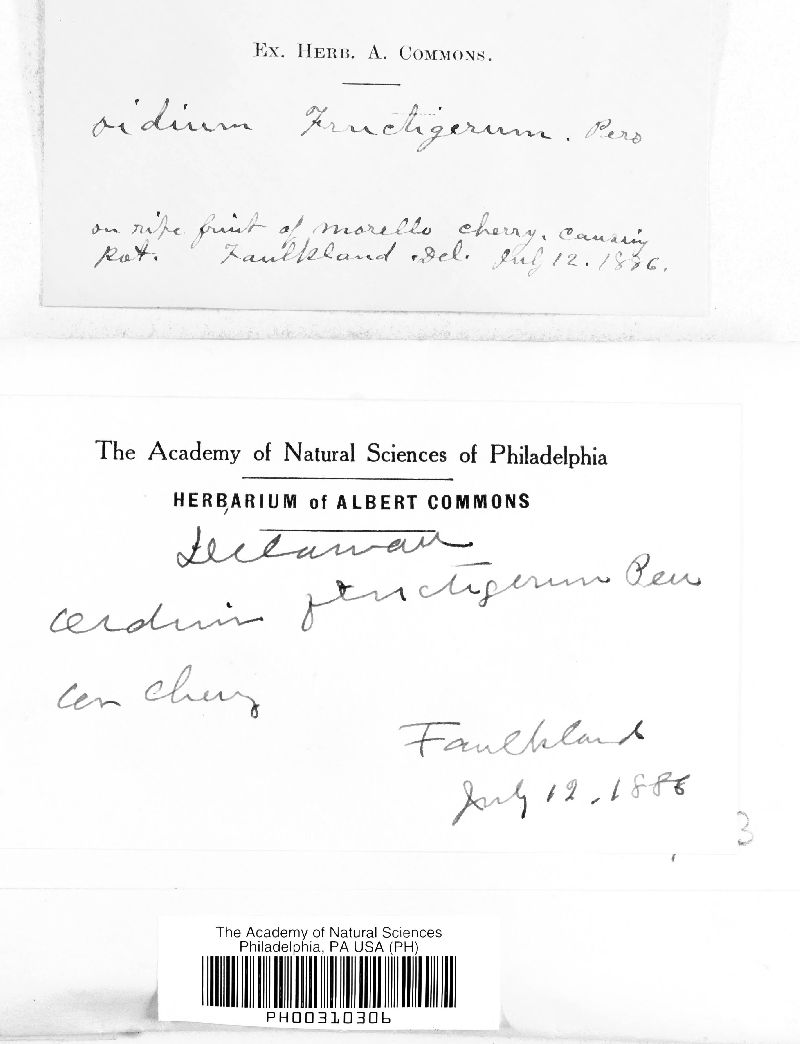 Ex. Herb. A. Commons.
oidium Fructigerum. Pers
on ripe fruit of morello cherry. causing
Rot. Faulkland .Del. July 12. 1886.
The Academy of Natural Sciences of Philadelphia
HERBARIUM of ALBERT COMMONS
Delaware
fructigerum Pers
on Cherry
Faulkland
July 12, 1886
3
The Academy of Natural Sciences
Philadelphia, PA USA (PH)
PH00310306